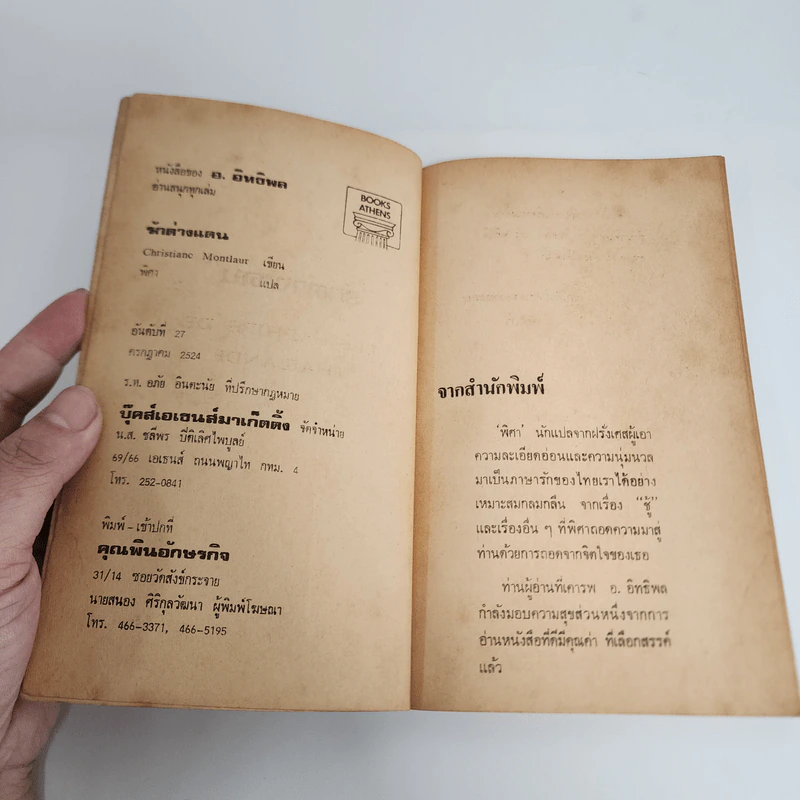 หนังสือของ อ. อิทธิพล
อ่านสนุกทุกเล่ม
BOOKS
ATHENS
ฆ่าต่างแดน
Christiane Montlaur เขียน
พิศา แปล
อันดับที่ 27
กรกฎาคม 2524
ร.ท. อภัย อินตะนัย ที่ปรึกษากฎหมาย
บุ๊คส์เอเธนส์มาเก็ตติ้ง จัดจำหน่าย
น.ส. ชลีพร ปีติเลิศไพบูลย์
69/66 เอเธนส์ ถนนพญาไท กทม. 4
โทร. 252-0841
พิมพ์ – เข้าปกที่
คุณพินอักษรกิจ
31/14 ซอยวัดสังข์กระจาย
นายสนอง ศิริกุลวัฒนา ผู้พิมพ์โฆษณา
โทร. 466-3371, 466-5195
จากสำนักพิมพ์
‘พิศา’ นักแปลจากฝรั่งเศสผู้เอา
ความละเอียดอ่อนและความนุ่มนวล
มาเป็นภาษารักของไทยเราได้อย่าง
เหมาะสมกลมกลืน จากเรื่อง “ชู้”
และเรื่องอื่น ๆ ที่พิศาถอดความมาสู่
ท่านด้วยการถอดจากจิตใจของเธอ
ท่านผู้อ่านที่เคารพ อ. อิทธิพล
กำลังมอบความสุขส่วนหนึ่งจากการ
อ่านหนังสือที่ดีมีคุณค่า ที่เลือกสรรค์
แล้ว